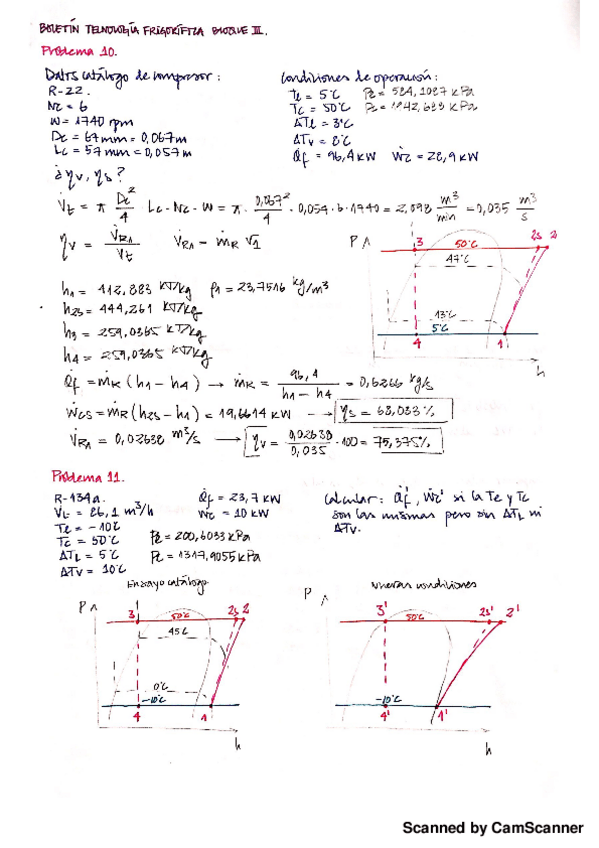 BOLETÍN TECNOLOGÍA FRIGORÍFICA BLOQUE III.
Problema 10.
Datos catálogo de compresor:
R-22.
Nc = 6
W = 1740 rpm
Dc = 67mm = 0,067m
Lc = 57mm = 0,057m
¿ηv, ηs?
Condiciones de operación:
Te = 5°C Pe = 584,1087 kPa
Tc = 50°C Pc = 1942,689 kPa
ΔTl = 3°C
ΔTv = 8°C
Q̇f = 96,4 kW Ẇc = 28,9 kW
V̇t = π Dc²/4 Lc · Nc · W = π · 0,067²/4 · 0,057 · 6 · 1740 = 2,098 m³/min = 0,035 m³/s
ηv = V̇R1/V̇t V̇R1 = ṁR v1
P
3
50°C
2s 2
47°C
13°C
5°C
4
1
h
h1 = 412,883 kJ/kg ρ1 = 23,7516 kg/m³
h2s = 444,261 kJ/kg
h3 = 259,0365 kJ/kg
h4 = 259,0365 kJ/kg
Q̇f = ṁR (h1 - h4) → ṁR = 96,4/(h1 - h4) = 0,6266 kg/s
Ẇcs = ṁR (h2s - h1) = 19,6614 kW → ηs = 68,033%
V̇R1 = 0,02638 m³/s → ηv = 0,02638/0,035 · 100 = 75,375%
Problema 11.
R-134a.
V̇t = 26,1 m³/h
Te = -10°C
Tc = 50°C
ΔTl = 5°C
ΔTv = 10°C
Q̇f = 23,7 kW
Ẇc = 10 kW
Pe = 200,6033 kPa
Pc = 1317,9055 kPa
Calcular: Q̇f', Ẇc' si la Te y Tc
son las mismas pero sin ΔTl ni
ΔTv.
Ensayo catálogo
P
3
50°C
2s 2
45°C
0°C
-10°C
4
1
h
nuevas condiciones
P
3'
50°C
2s' 2'
-10°C
4'
1'
h
Scanned by CamScanner